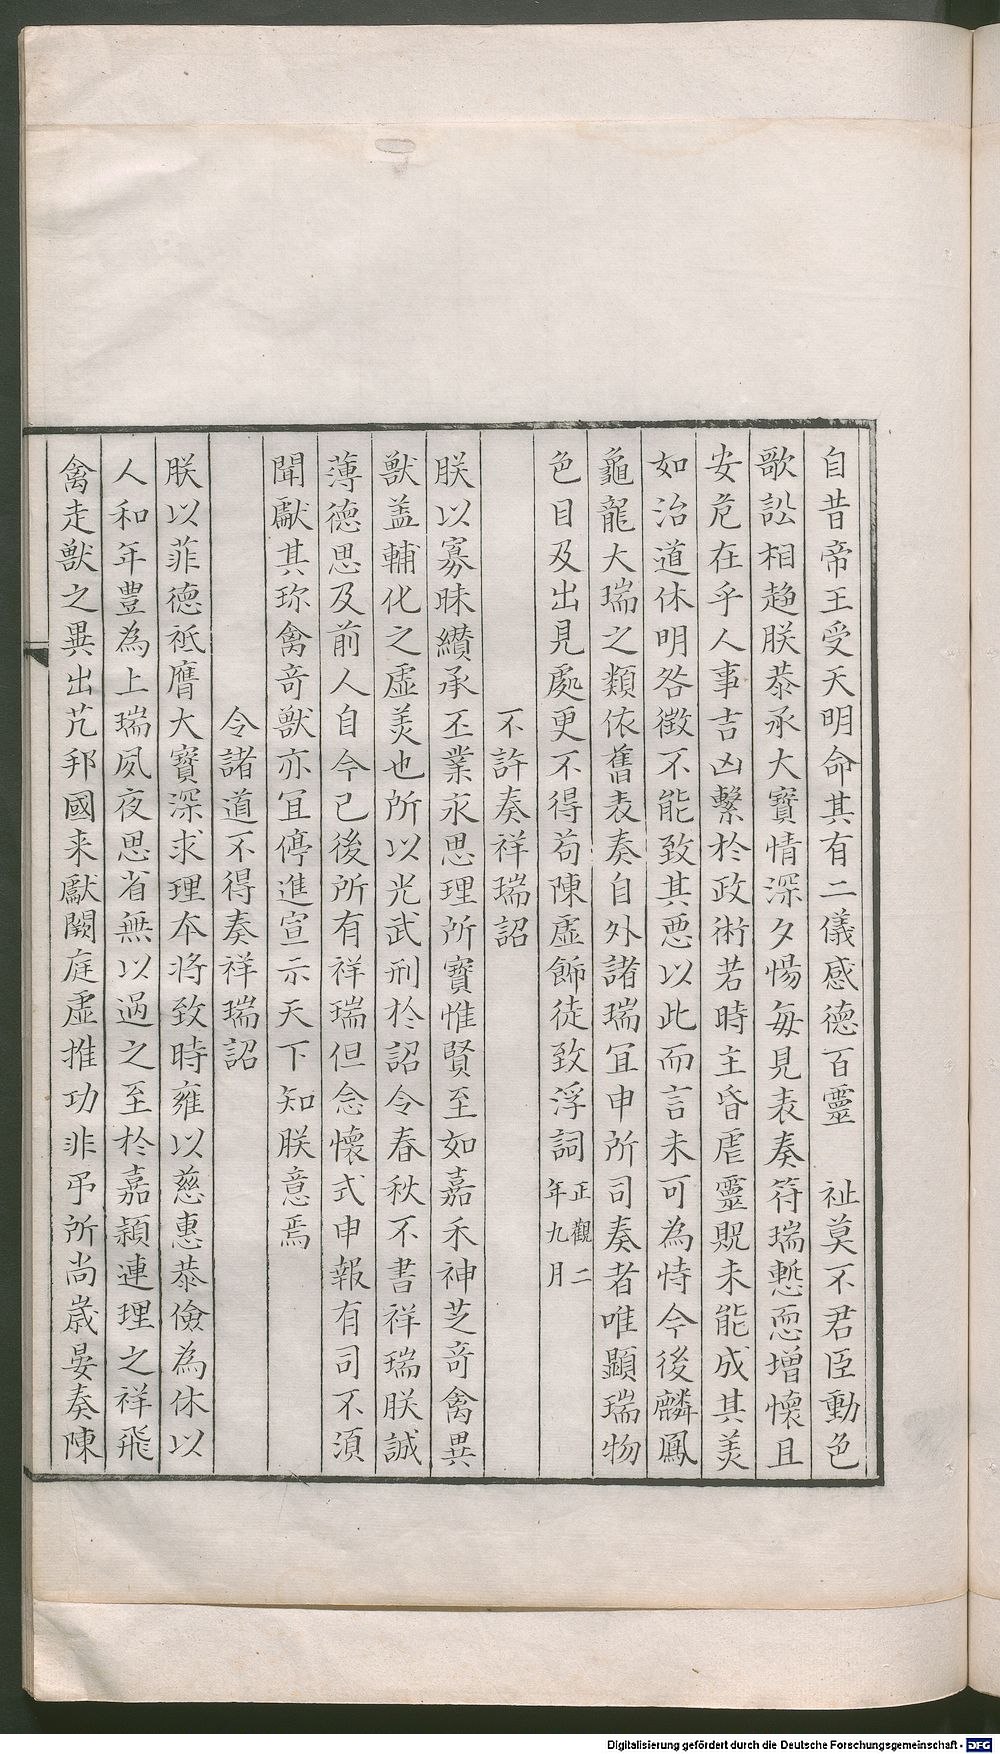 自昔帝王受天明命其有二儀感德百靈　祉莫不君臣動色
歌訟相趍朕恭承大寳情深夕惕每見表奏符瑞慙恧增懷且
安危在乎人事吉凶繫於政術若時主昏虐靈貺未能成其美
如治道休明咎徵不能致其惡以此而言未可為恃今後麟鳳
龜龍大瑞之類依舊表奏自外諸瑞冝申所司奏者唯顯瑞物
色目及出見處更不得苟陳虛飾徒致浮詞正觀二年九月
不許奏祥瑞詔
朕以寡昧纉承丕業永思理所寳惟賢至如嘉禾神芝奇禽異
獸盖輔化之虛美也所以光武刑於詔令春秋不書祥瑞朕誠
薄德思及前人自今已後所有祥瑞但念懷式申報有司不湏
聞獻其珎禽奇獸亦冝停進宣示天下知朕意焉
令諸道不得奏祥瑞詔
朕以菲德祗膺大寳深求理本将致時雍以慈惠恭儉為休以
人和年豊為上瑞夙夜思省無以過之至於嘉頴連理之祥飛
禽走獸之異出芃邦國来獻闕庭虛推功非吊所尚歳晏奏陳
Digitalisierung gefördert durch die Deutsche Forschungsgemeinschaft - DFG